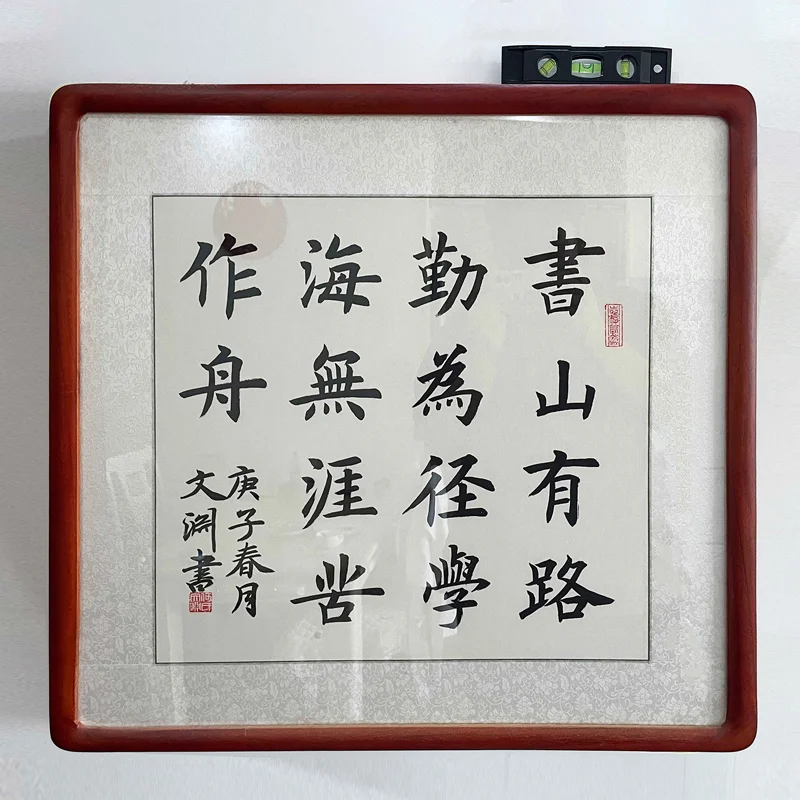 書山有路
勤為径學
海無涯苦
作舟
庚子春月
文淵書